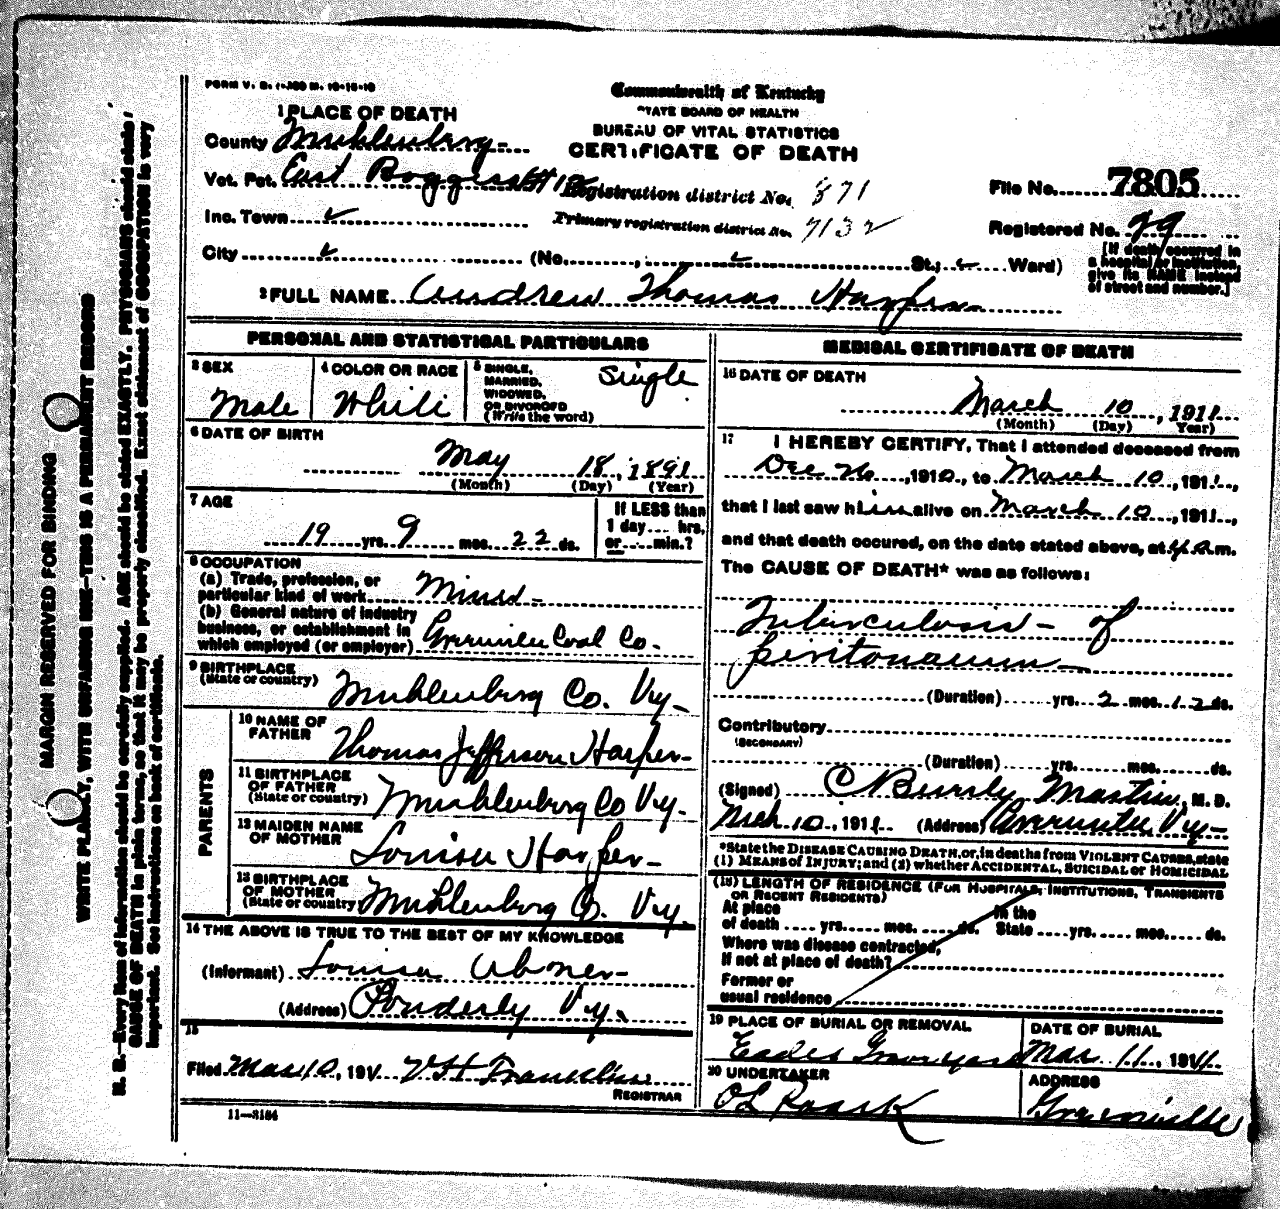 FORM V. S. 1-
Commonwealth of Kentucky
STATE BOARD OF HEALTH
BUREAU OF VITAL STATISTICS
CERTIFICATE OF DEATH
1 PLACE OF DEATH
County Muhlenberg
Vot. Pct. East Boggess # 12
Inc. Town ✓
City ✓ (No. , ✓ St.; ✓ Ward)
Registration district No. 871
Primary registration district No. 7132
File No. 7805
Registered No. 29
[If death occurred in
a hospital or institution
give its NAME instead
of street and number.]
2 FULL NAME Andrew Thomas Harper
PERSONAL AND STATISTICAL PARTICULARS
3 SEX
Male
4 COLOR OR RACE
White
5 SINGLE,
MARRIED,
WIDOWED,
OR DIVORCED
(Write the word)
Single
6 DATE OF BIRTH
May 18, 1891
(Month) (Day) (Year)
7 AGE
19 yrs. 9 mos. 22 ds.
If LESS than
1 day.... hrs.
or.... min.?
8 OCCUPATION
(a) Trade, profession, or
particular kind of work Miner
(b) General nature of industry
business, or establishment in
which employed (or employer) Greenville Coal Co.
9 BIRTHPLACE
(State or country) Muhlenberg Co. Ky
PARENTS
10 NAME OF
FATHER Thomas Jefferson Harper
11 BIRTHPLACE
OF FATHER
(State or country) Muhlenberg Co Ky.
12 MAIDEN NAME
OF MOTHER Louisa Harper
13 BIRTHPLACE
OF MOTHER
(State or country) Muhlenberg Co. Ky.
14 THE ABOVE IS TRUE TO THE BEST OF MY KNOWLEDGE
(Informant) Louisa
(Address) Ky.
15
Filed Mar 10, 191 V H Franklin
REGISTRAR
11—3184
MEDICAL CERTIFICATE OF DEATH
16 DATE OF DEATH
March 10, 1911
(Month) (Day) (Year)
17 I HEREBY CERTIFY, That I attended deceased from
Dec 26, 1910, to March 10, 1911,
that I last saw him alive on March 10, 1911,
and that death occured, on the date stated above, at 4 a.m.
The CAUSE OF DEATH* was as follows:
Tuberculosis of
peritonaeum
(Duration) yrs. 2 mos. 12 ds.
Contributory
(SECONDARY)
(Duration) yrs. mos. ds.
(Signed) C Martin, M. D.
Mch 10, 1911 (Address) Greenville Ky
*State the DISEASE CAUSING DEATH, or, in deaths from VIOLENT CAUSES, state
(1) MEANS OF INJURY; and (2) whether ACCIDENTAL, SUICIDAL or HOMICIDAL
(18) LENGTH OF RESIDENCE (FOR HOSPITALS, INSTITUTIONS, TRANSIENTS
OR RECENT RESIDENTS)
At place
of death .... yrs..... mos..... ds.
In the
State .... yrs..... mos..... ds.
Where was disease contracted,
If not at place of death?
Former or
usual residence
19 PLACE OF BURIAL OR REMOVAL
Eades Graveyard
DATE OF BURIAL
Mar 11, 1911
20 UNDERTAKER
C L Roark
ADDRESS
Greenville
MARGIN RESERVED FOR BINDING
WRITE PLAINLY, WITH UNFADING INK—THIS IS A PERMANENT RECORD
N. B.—Every item of information should be carefully supplied. AGE should be stated EXACTLY. PHYSICIANS should state
CAUSE OF DEATH in plain terms, so that it may be properly classified. Exact statement of OCCUPATION is very
important. See instructions on back of certificate.